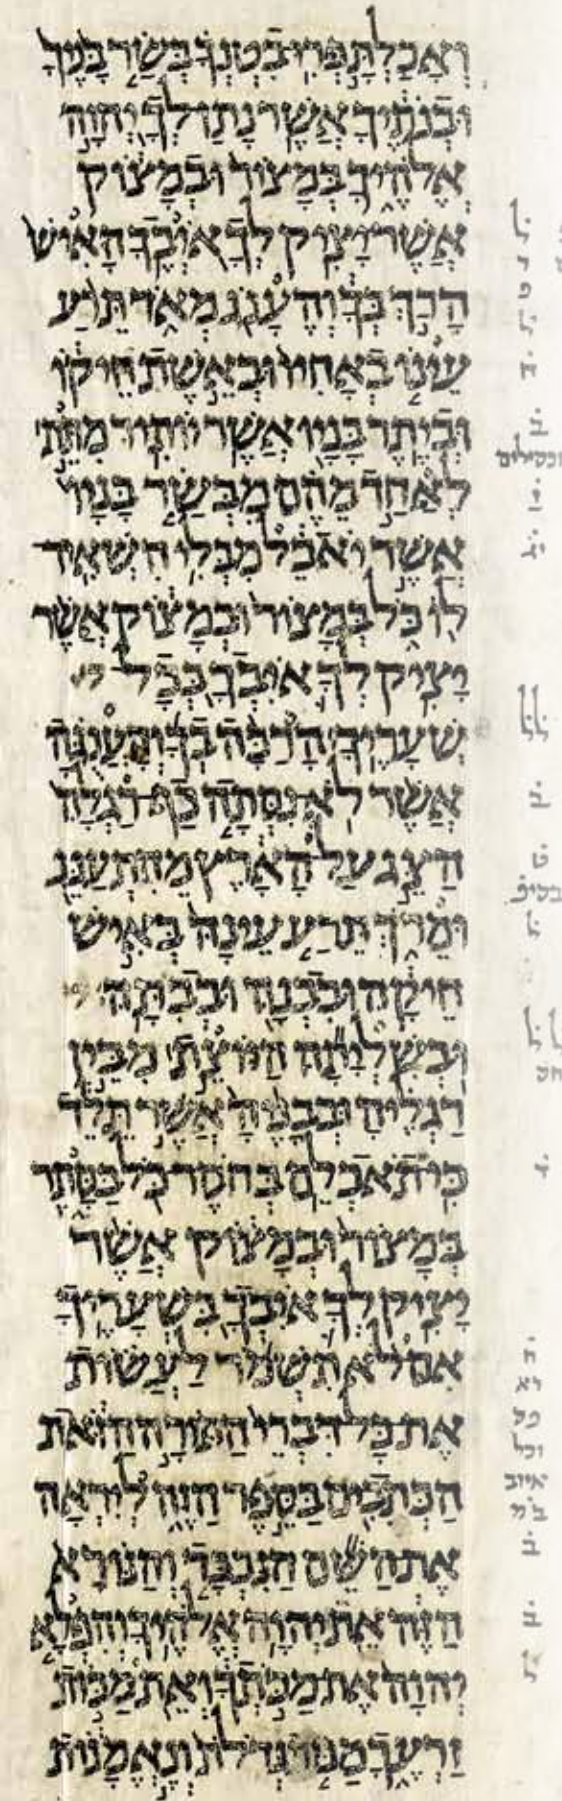 וְאָכַלְתָּ פְרִי בִטְנְךָ בְּשַׂר בָּנֶיךָ
וּבְנֹתֶיךָ אֲשֶׁר נָתַן לְךָ יְהוָה
אֱלֹהֶיךָ בְּמָצוֹר וּבְמָצוֹק
אֲשֶׁר יָצִיק לְךָ אֹיְבֶךָ הָאִישׁ
הָרַךְ בְּךָ וְהֶעָנֹג מְאֹד תֵּרַע
עֵינוֹ בְאָחִיו וּבְאֵשֶׁת חֵיקוֹ
וּבְיֶתֶר בָּנָיו אֲשֶׁר יוֹתִיר מִתֵּת
לְאַחַד מֵהֶם מִבְּשַׂר בָּנָיו
אֲשֶׁר יֹאכֵל מִבְּלִי הִשְׁאִיר
לוֹ כֹּל בְּמָצוֹר וּבְמָצוֹק אֲשֶׁר
יָצִיק לְךָ אֹיִבְךָ בְּכָל
שְׁעָרֶיךָ הָרַכָּה בְךָ וְהָעֲנֻגָּה
אֲשֶׁר לֹא נִסְּתָה כַף רַגְלָהּ
הַצֵּג עַל הָאָרֶץ מֵהִתְעַנֵּג
וּמֵרֹךְ תֵּרַע עֵינָהּ בְּאִישׁ
חֵיקָהּ וּבִבְנָהּ וּבְבִתָּהּ
וּבְשִׁלְיָתָהּ הַיּוֹצֵת מִבֵּין
רַגְלֶיהָ וּבְבָנֶיהָ אֲשֶׁר תֵּלֵד
כִּי תֹאכְלֵם בְּחֹסֶר כֹּל בַּסָּתֶר
בְּמָצוֹר וּבְמָצוֹק אֲשֶׁר
יָצִיק לְךָ אֹיִבְךָ בִּשְׁעָרֶיךָ
אִם לֹא תִשְׁמֹר לַעֲשׂוֹת
אֶת כָּל דִּבְרֵי הַתּוֹרָה הַזֹּאת
הַכְּתֻבִים בַּסֵּפֶר הַזֶּה לְיִרְאָה
אֶת הַשֵּׁם הַנִּכְבָּד וְהַנּוֹרָא
הַזֶּה אֵת יְהוָה אֱלֹהֶיךָ וְהִפְלָא
יְהוָה אֶת מַכֹּתְךָ וְאֵת מַכּוֹת
זַרְעֶךָ מַכּוֹת גְּדֹלֹת וְנֶאֱמָנוֹת